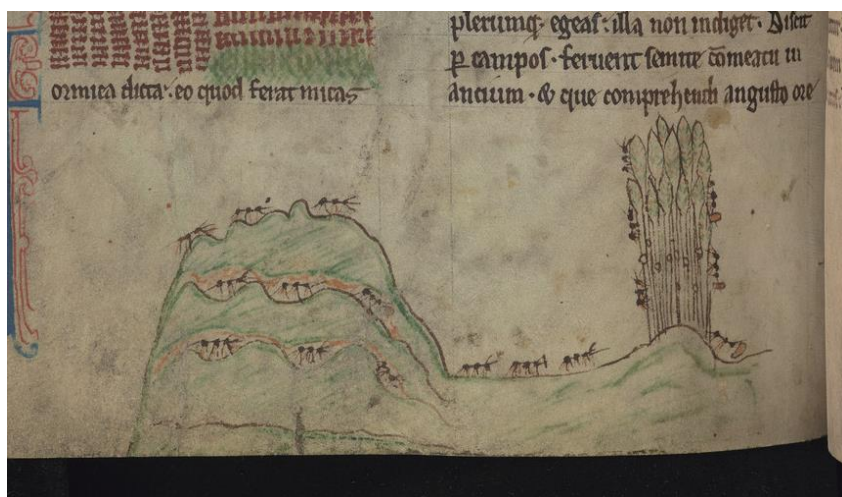 ormica dicta. eo quod ferat micas
plerumq; egeas. illa non indiget.
ꝑ campos. feruent semite cōmeatu ui
ancium. & que comprehendi angusto ore